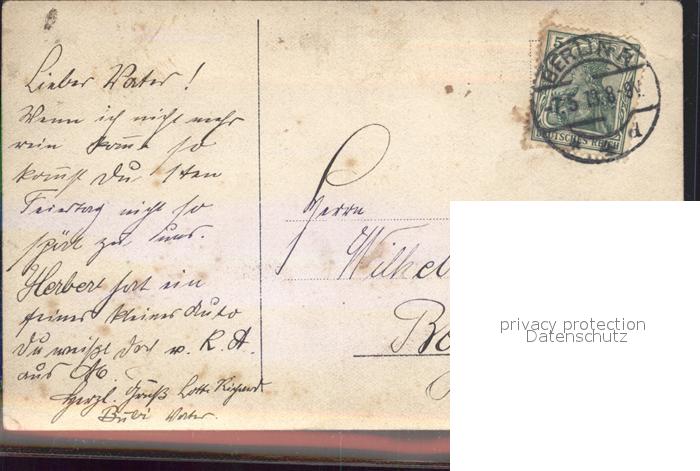 Lieber Vater!
Wenn ich nicht mehr
rein komme so
kommst Du 1ten
Feiertag nicht so
spät zu uns.
Herbert hat ein
feines kleines Auto
Du weißt doch v. R. A.
aus
Herzl. Gruß Lotte Richard
Bubi Vater.
5
BERLIN
-7.5.13.8-9V.
DEUTSCHES REICH
d
Herrn
Wilhel
Bo
privacy protection
Datenschutz